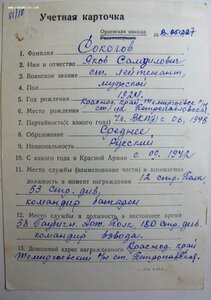 Учетная карточка
Орденская книжка
1. Фамилия Соколов
2. Имя и отчество Яков Самуилович
3. Воинское звание ст. лейтенант
4. Пол мужской
5. Год рождения 1924
6. Место рождения Краснод. край, Темиргоевский р-н
7. Партийность (с какого года) Чл. ВКП(б) с 06.1945
8. Образование Среднее
9. Национальность Русский
10. С какого года в Красной Армии с 09.1942
11. Место службы (наименование части) и занимаемая
должность в момент награждения 12 стр. полк
53 стр. див.
командир батареи
12. Место службы и должность в настоящее время
180 стр. див.
командир взвода
13. Домашний адрес награжденного Краснод. край